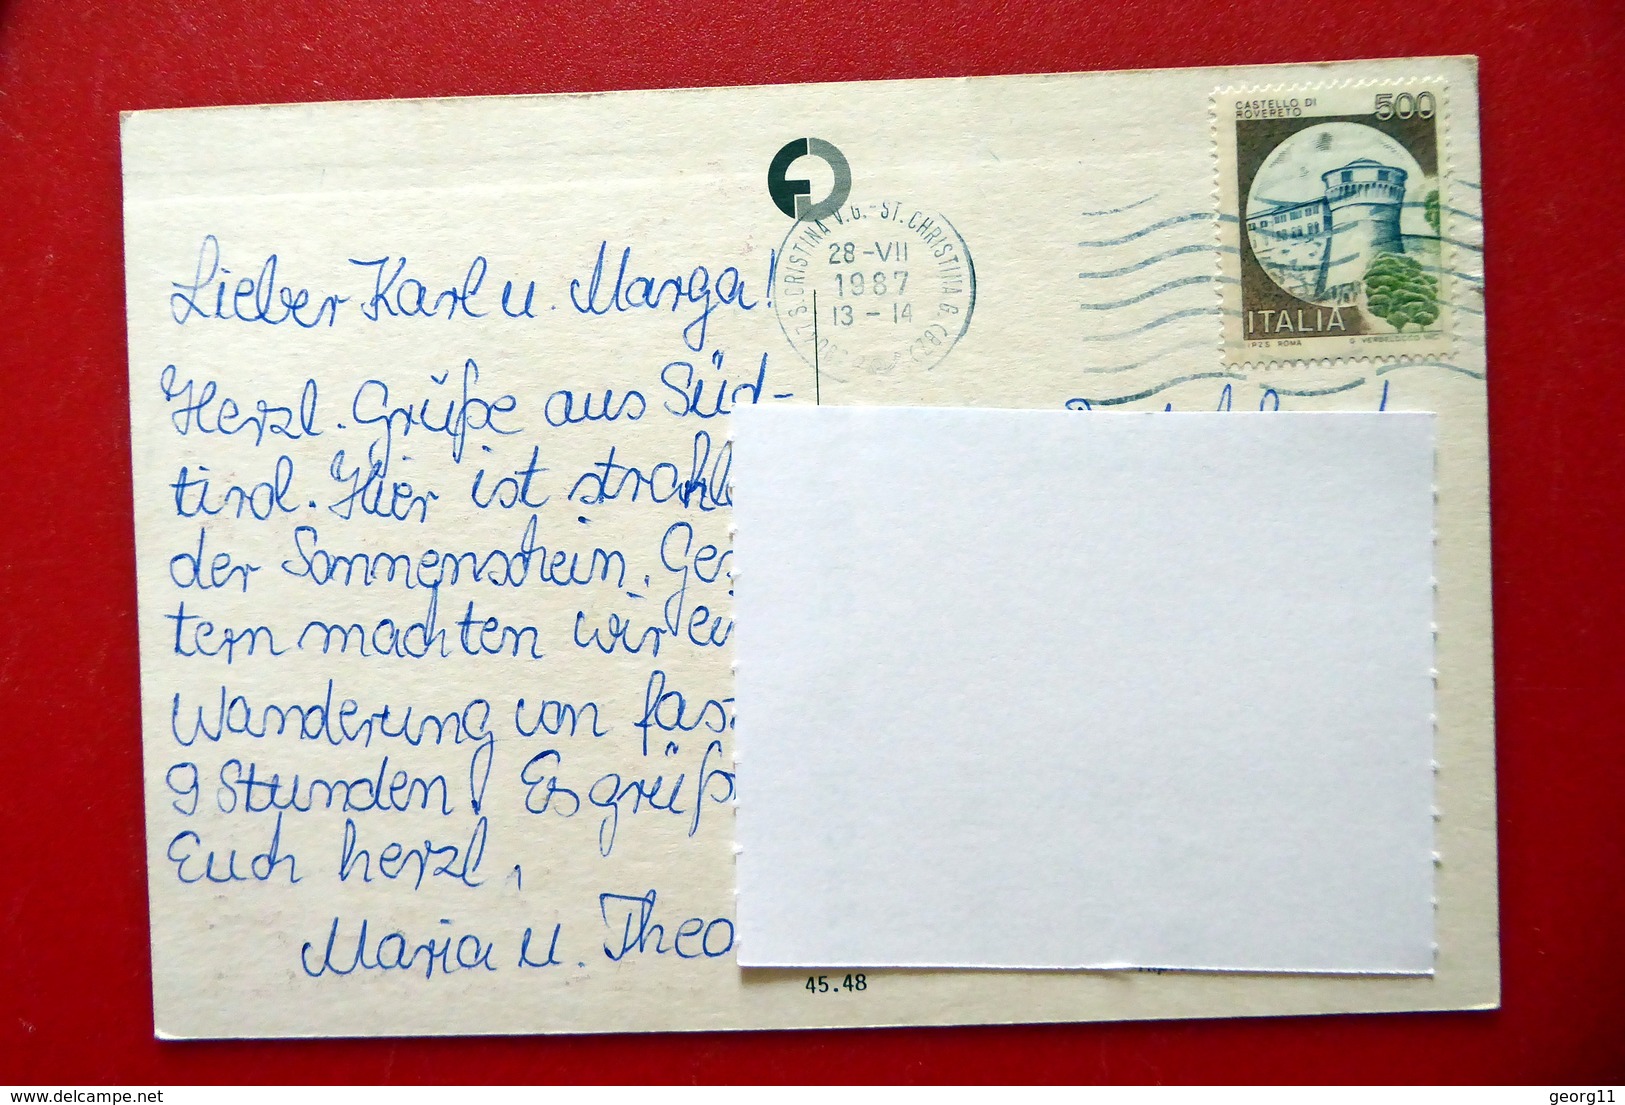 CASTELLO DI
ROVERETO
500
ITALIA
I.P.Z.S. ROMA
S. CRISTINA V.G.-ST. CHRISTINA G. (BZ)
28-VII
1987
13-14
Lieber Karl u. Marga!
Herzl. Grüße aus Süd-
tirol. Hier ist strahl
der Sonnenschein. Ges
tern machten wir ei
Wanderung von fas
9 Stunden! Es grüß
Euch herzl,
Maria u. Theo
45.48
delcampe.net
georg11